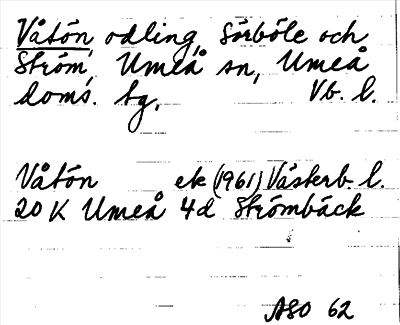 Våtön, odling, Sörböle och
Ström, Umeå sn, Umeå
doms. tg, Vb. l.
Våtön ek (1961) Västerb. l.
20 K Umeå 4d Strömbäck
ASO 62